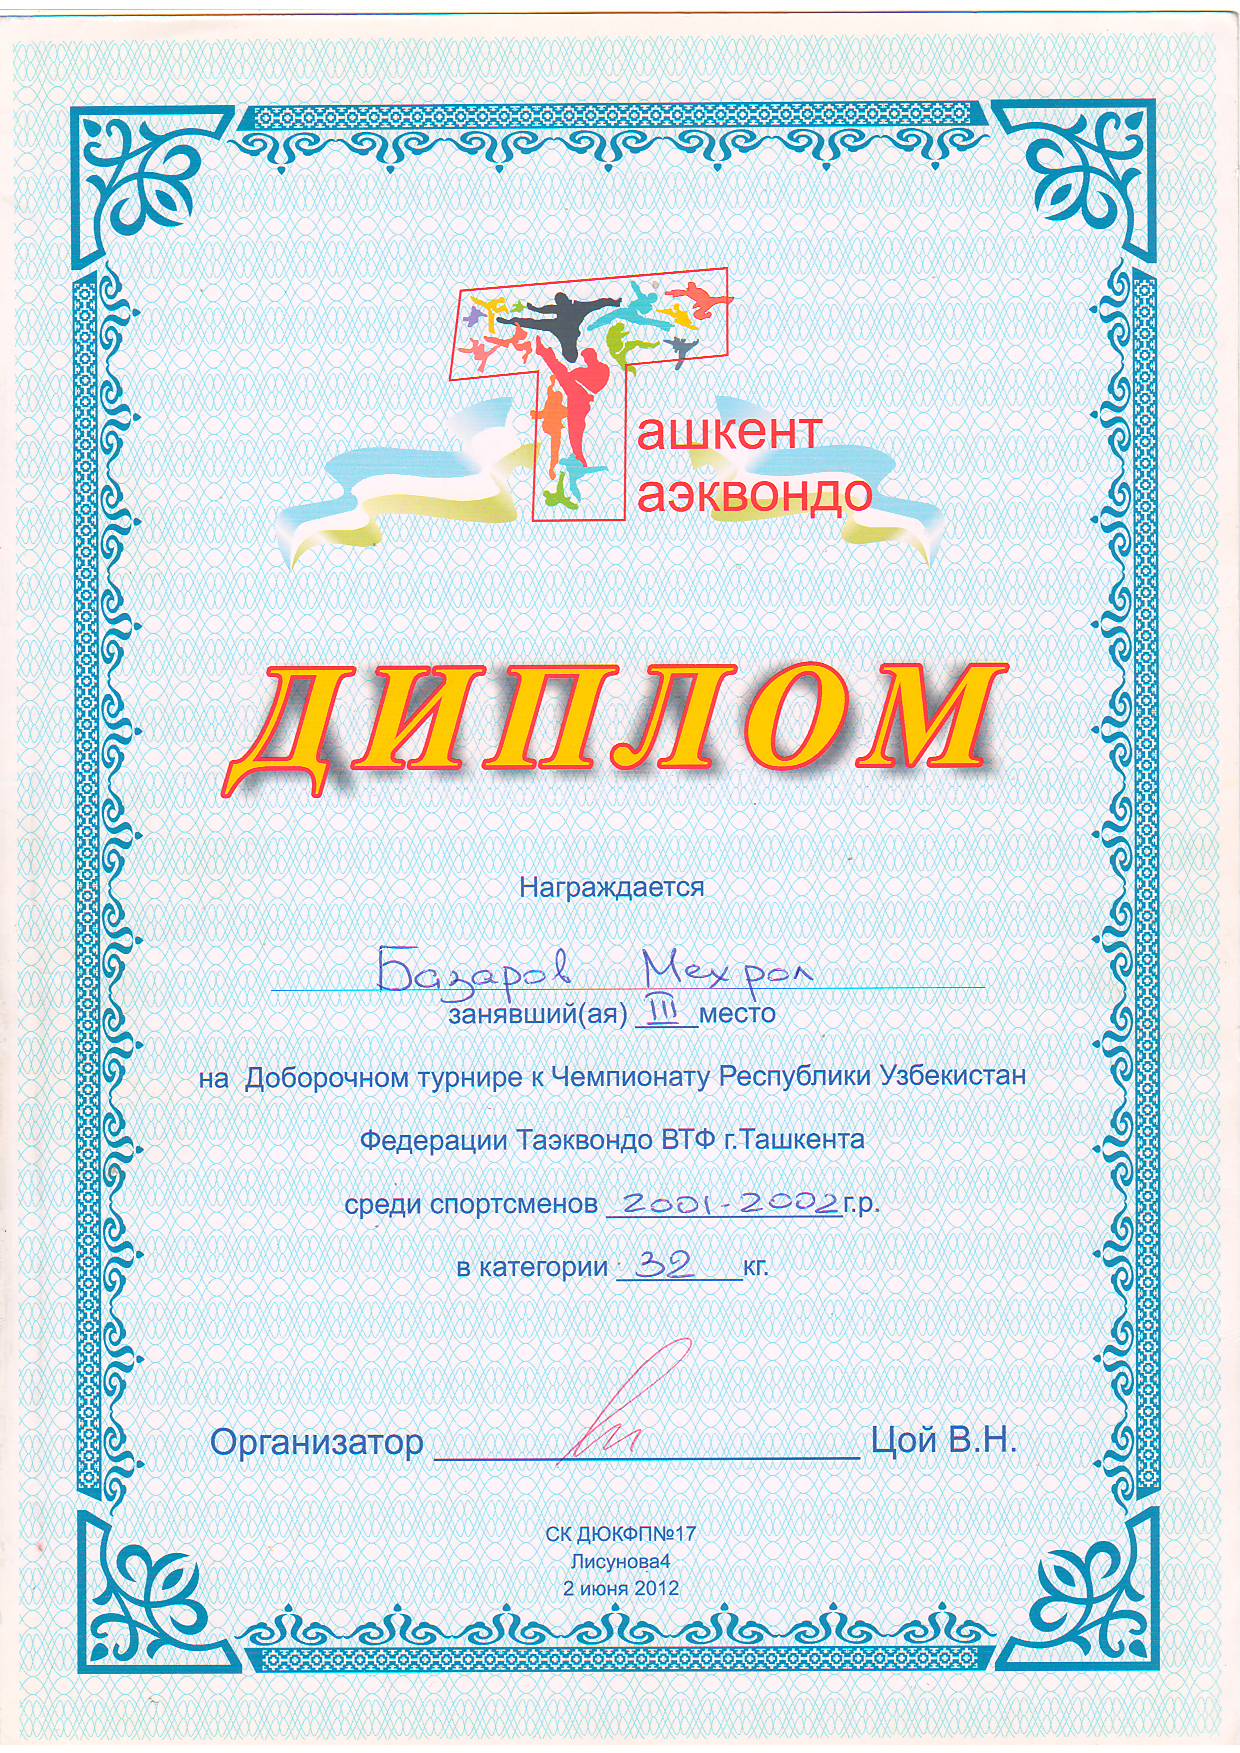 Ташкент
Таэквондо
ДИПЛОМ
Награждается
Базаров Мехрол
занявший(ая) III место
на Доборочном турнире к Чемпионату Республики Узбекистан
Федерации Таэквондо ВТФ г.Ташкента
среди спортсменов 2001-2002 г.р.
в категории 32 кг.
Организатор Цой В.Н.
СК ДЮКФП№17
Лисунова4
2 июня 2012